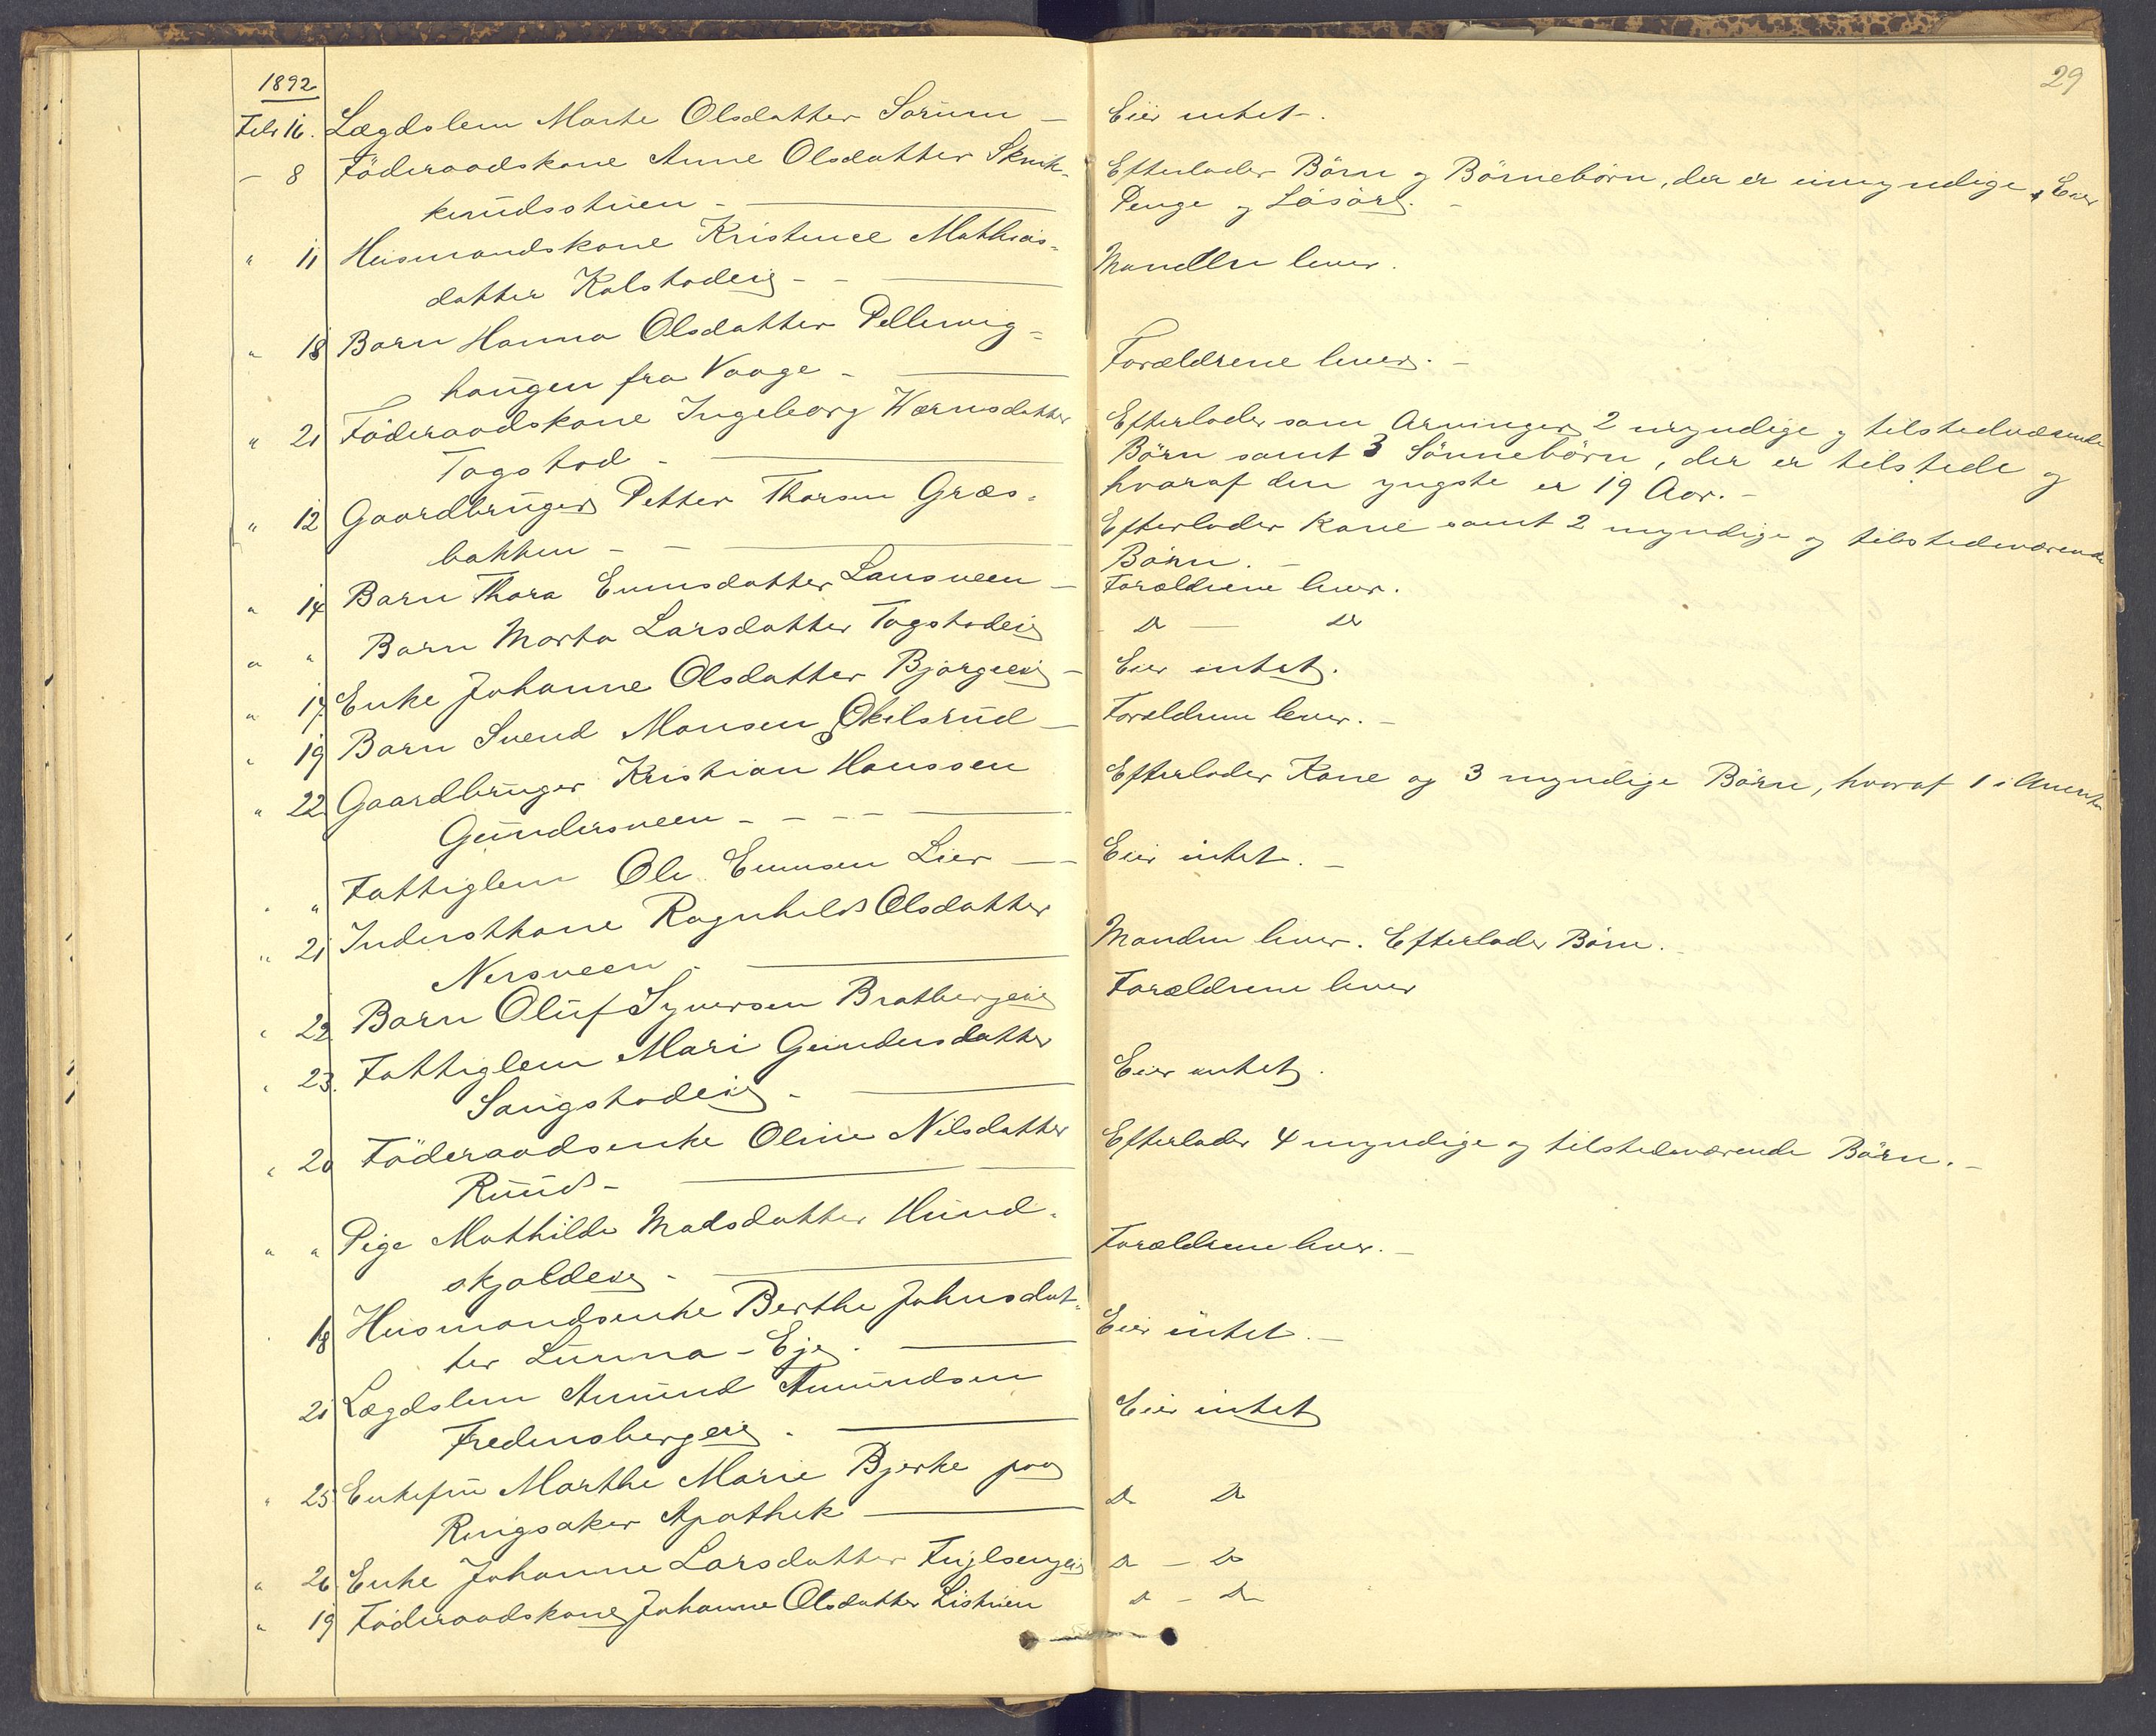 29
1892
Feb 16. Lægdslem Marte Olsdatter Sorum — Eier intet.
— 8 Föderaadskone Anne Olsdatter Skrik-
kerudsstuen — Efterlader Börn og Börnebörn, der er umyndige. Eier
Penge og Lösöre. —
" 11 Husmandskone Kristence Mathias-
datter Kolstadeie — Manden lever.
" 18 Barn Hanna Olsdatter Pellervig-
haugen fra Vaage — Forældrene lever. —
" 21 Föderaadskone Ingeborg Hansdatter
Togstad — Efterlader som Arvinger 2 myndige og tilstedeværende
Börn samt 3 Sönnebörn, der er tilstede og
hvoraf den yngste er 19 Aar. —
" 12 Gaardbruger Petter Thorsen Græs-
bakken — Efterlader Kone samt 2 myndige og tilstedeværende
Börn. —
" 14 Barn Thora Evensdatter Lausveen — Forældrene lever.
" " Barn Marta Larsdatter Togstadeie Do — Do
" 17 Enke Johanne Olsdatter Bjørgeeie — Eier intet.
" 19 Barn Svend Monsen Økelsrud — Forældrene lever. —
" 22 Gaardbruger Kristian Hanssen
Gundersveen — Efterlader Kone og 3 myndige Börn, hvoraf 1 i Amerika
" " Fattiglem Ole Evensen Lier — Eier intet. —
" 21 Inderstkone Ragnhild Olsdatter
Nersveen — Manden lever. Efterlader Börn.
" 22 Barn Oluf Syversen Bratbergeie Forældrene lever
" 23. Fattiglem Mari Gundersdatter
Saugstadeie — Eier intet.
" 20 Föderaadsenke Oline Nilsdatter
Ruud — Efterlader 4 myndige og tilstedeværende Börn. —
" " Pige Mathilde Madsdatter Hund-
skjoldeie — Forældrene lever. —
18 Husmandsenke Berthe Johnsdat-
ter Lunna-Eje — Eier intet. —
21 Lægdslem Amund Amundsen
Fredensbergeie — Eier intet
" 25 Enkefru Marthe Marie Bjerke paa
Ringsaker Apothek — Do Do
" 26 Enke Johanne Larsdatter Fuglsengeie Do — Do
" 19 Föderaadskone Johanne Olsdatter Listuen Do — Do